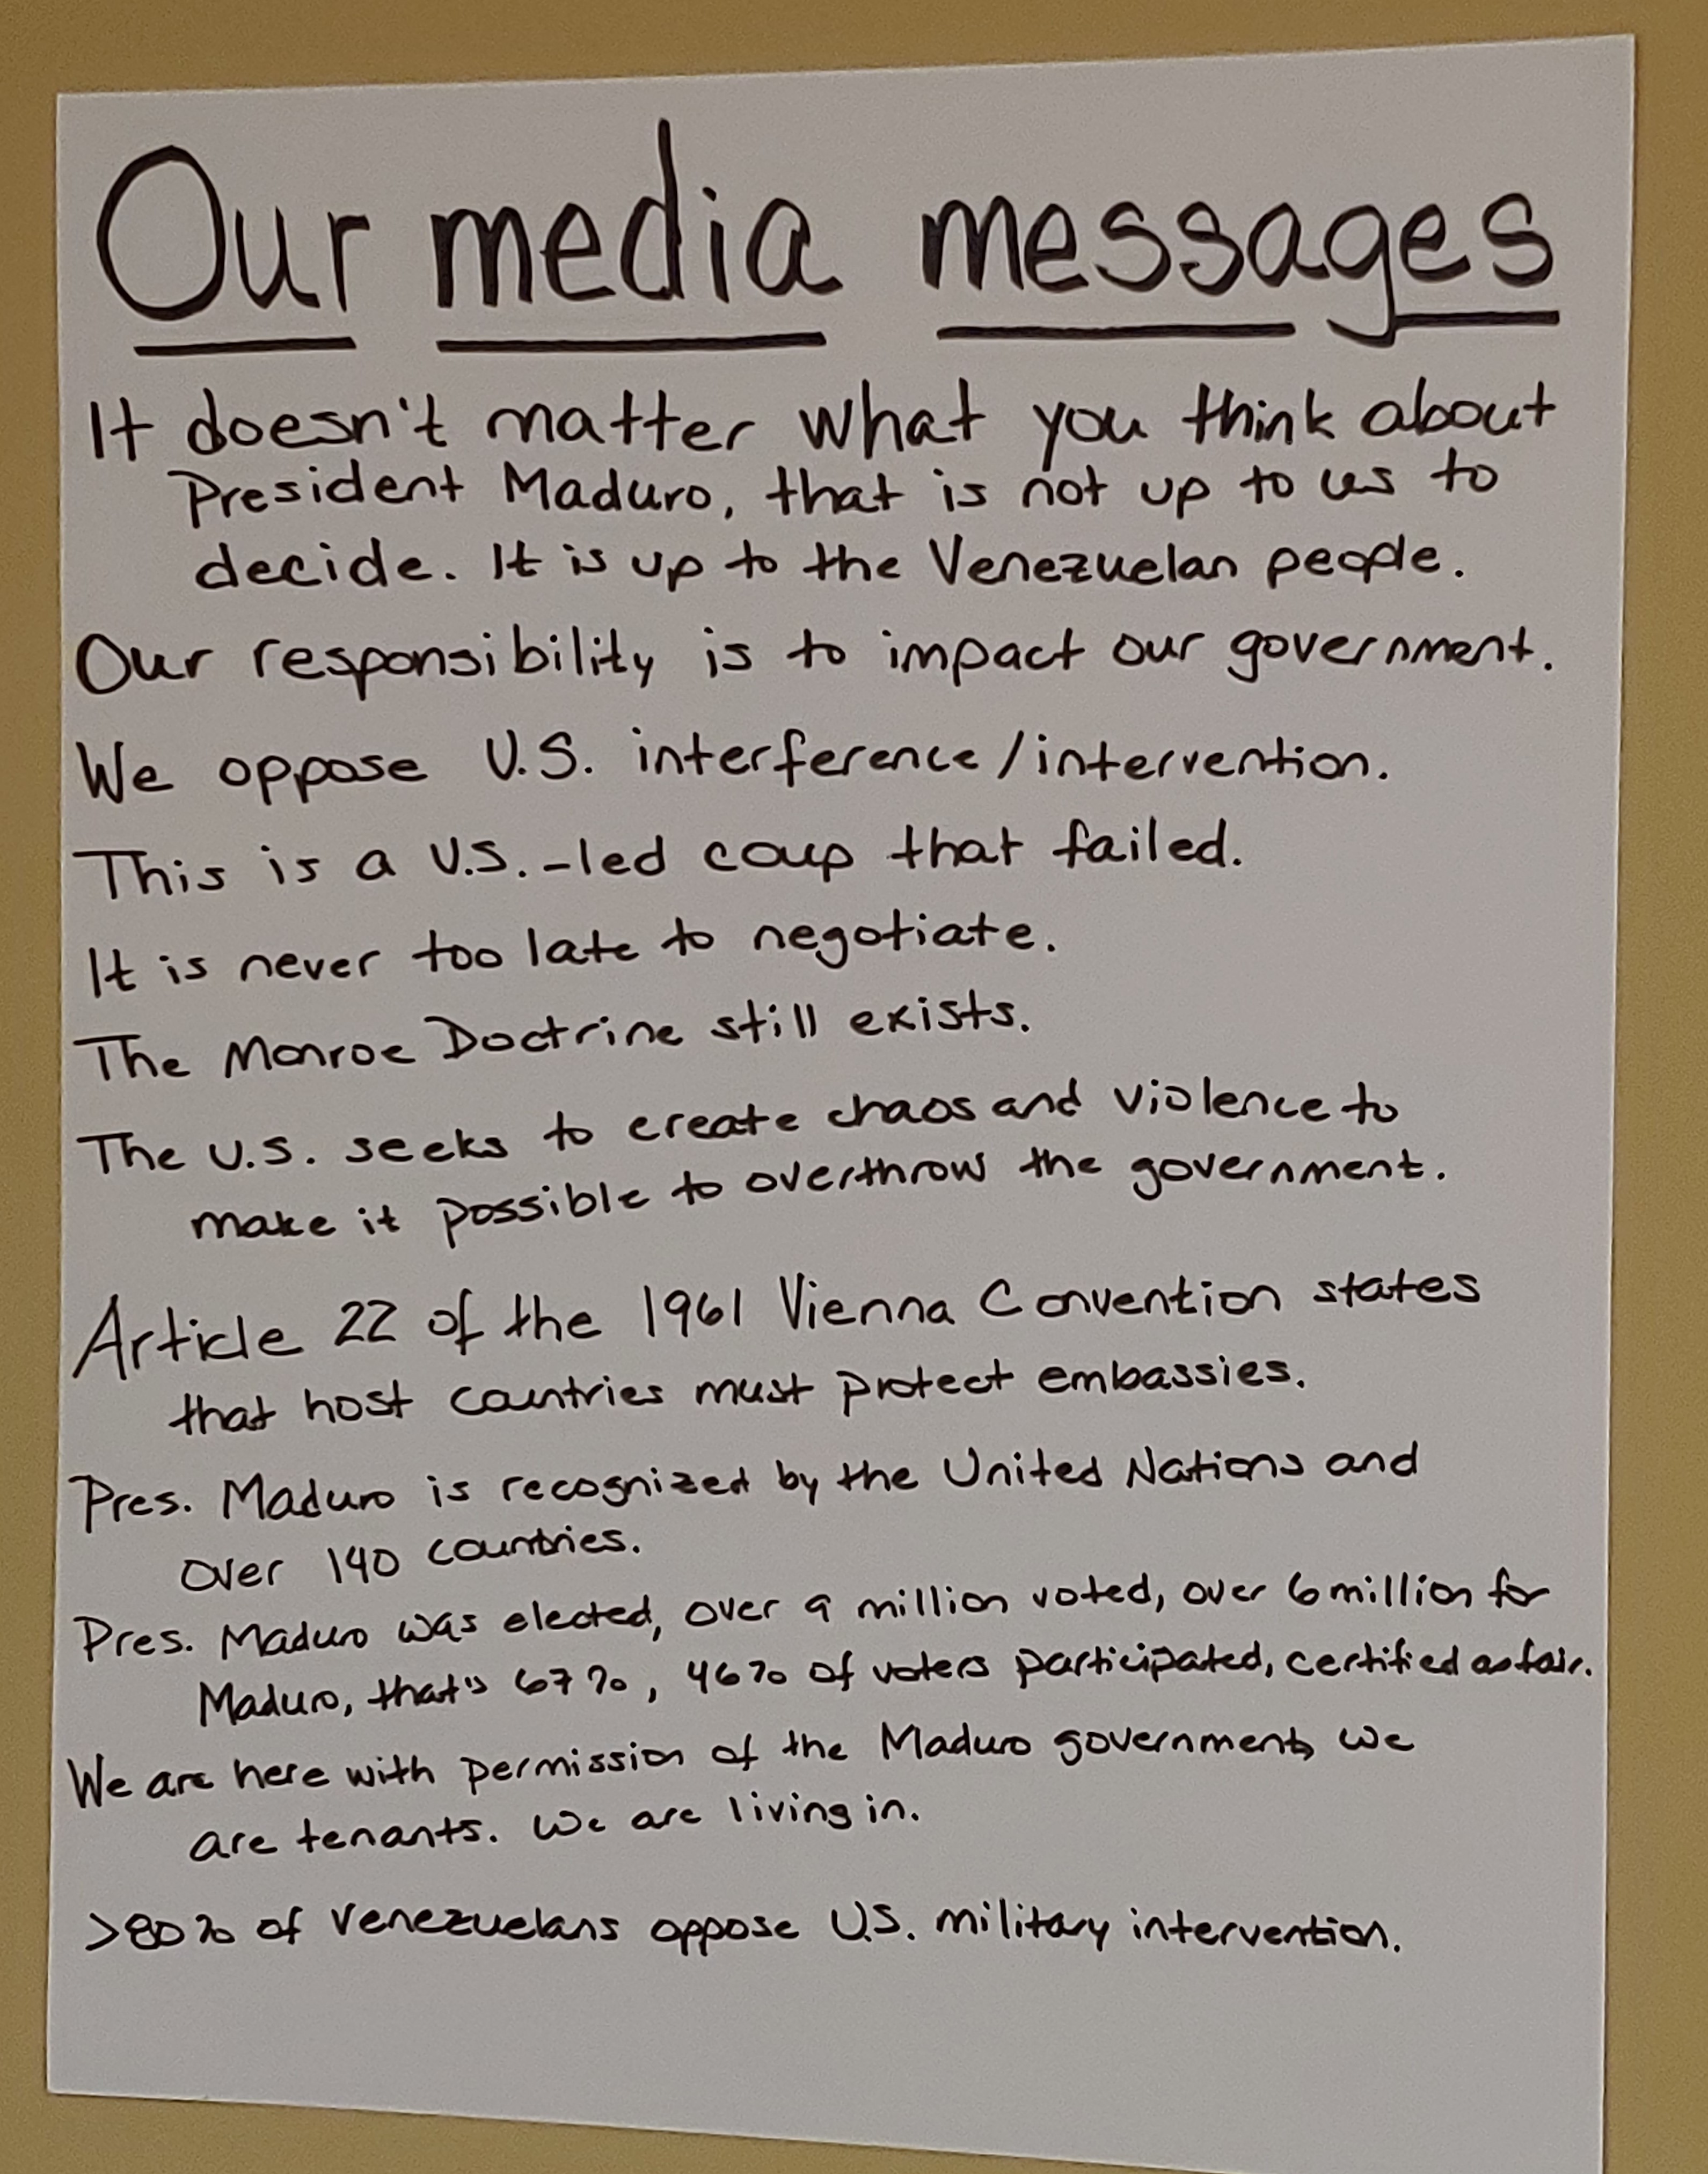 Our media messages
It doesn't matter what you think about
President Maduro, that is not up to us to
decide. It is up to the Venezuelan people.
Our responsibility is to impact our government.
We oppose U.S. interference/intervention.
This is a U.S.-led coup that failed.
It is never too late to negotiate.
The Monroe Doctrine still exists.
The U.S. seeks to create chaos and violence to
make it possible to overthrow the government.
Article 22 of the 1961 Vienna Convention states
that host countries must protect embassies.
Pres. Maduro is recognized by the United Nations and
over 140 countries.
Pres. Maduro was elected, over 9 million voted, over 6 million for
Maduro, that's 67%, 46% of voters participated, certified as fair.
We are here with permission of the Maduro government, we
are tenants. We are living in.
>80% of Venezuelans oppose U.S. military intervention.